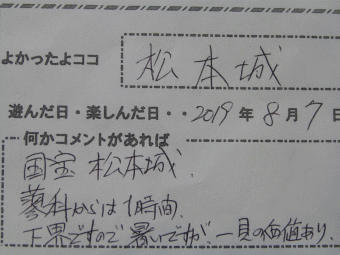 よかったよココ 松本城
遊んだ日・楽しんだ日・・2019年8月7日
何かコメントがあれば
国宝 松本城.
蓼科からは1時間.
下界ですので暑いですが、一見の価値あり.